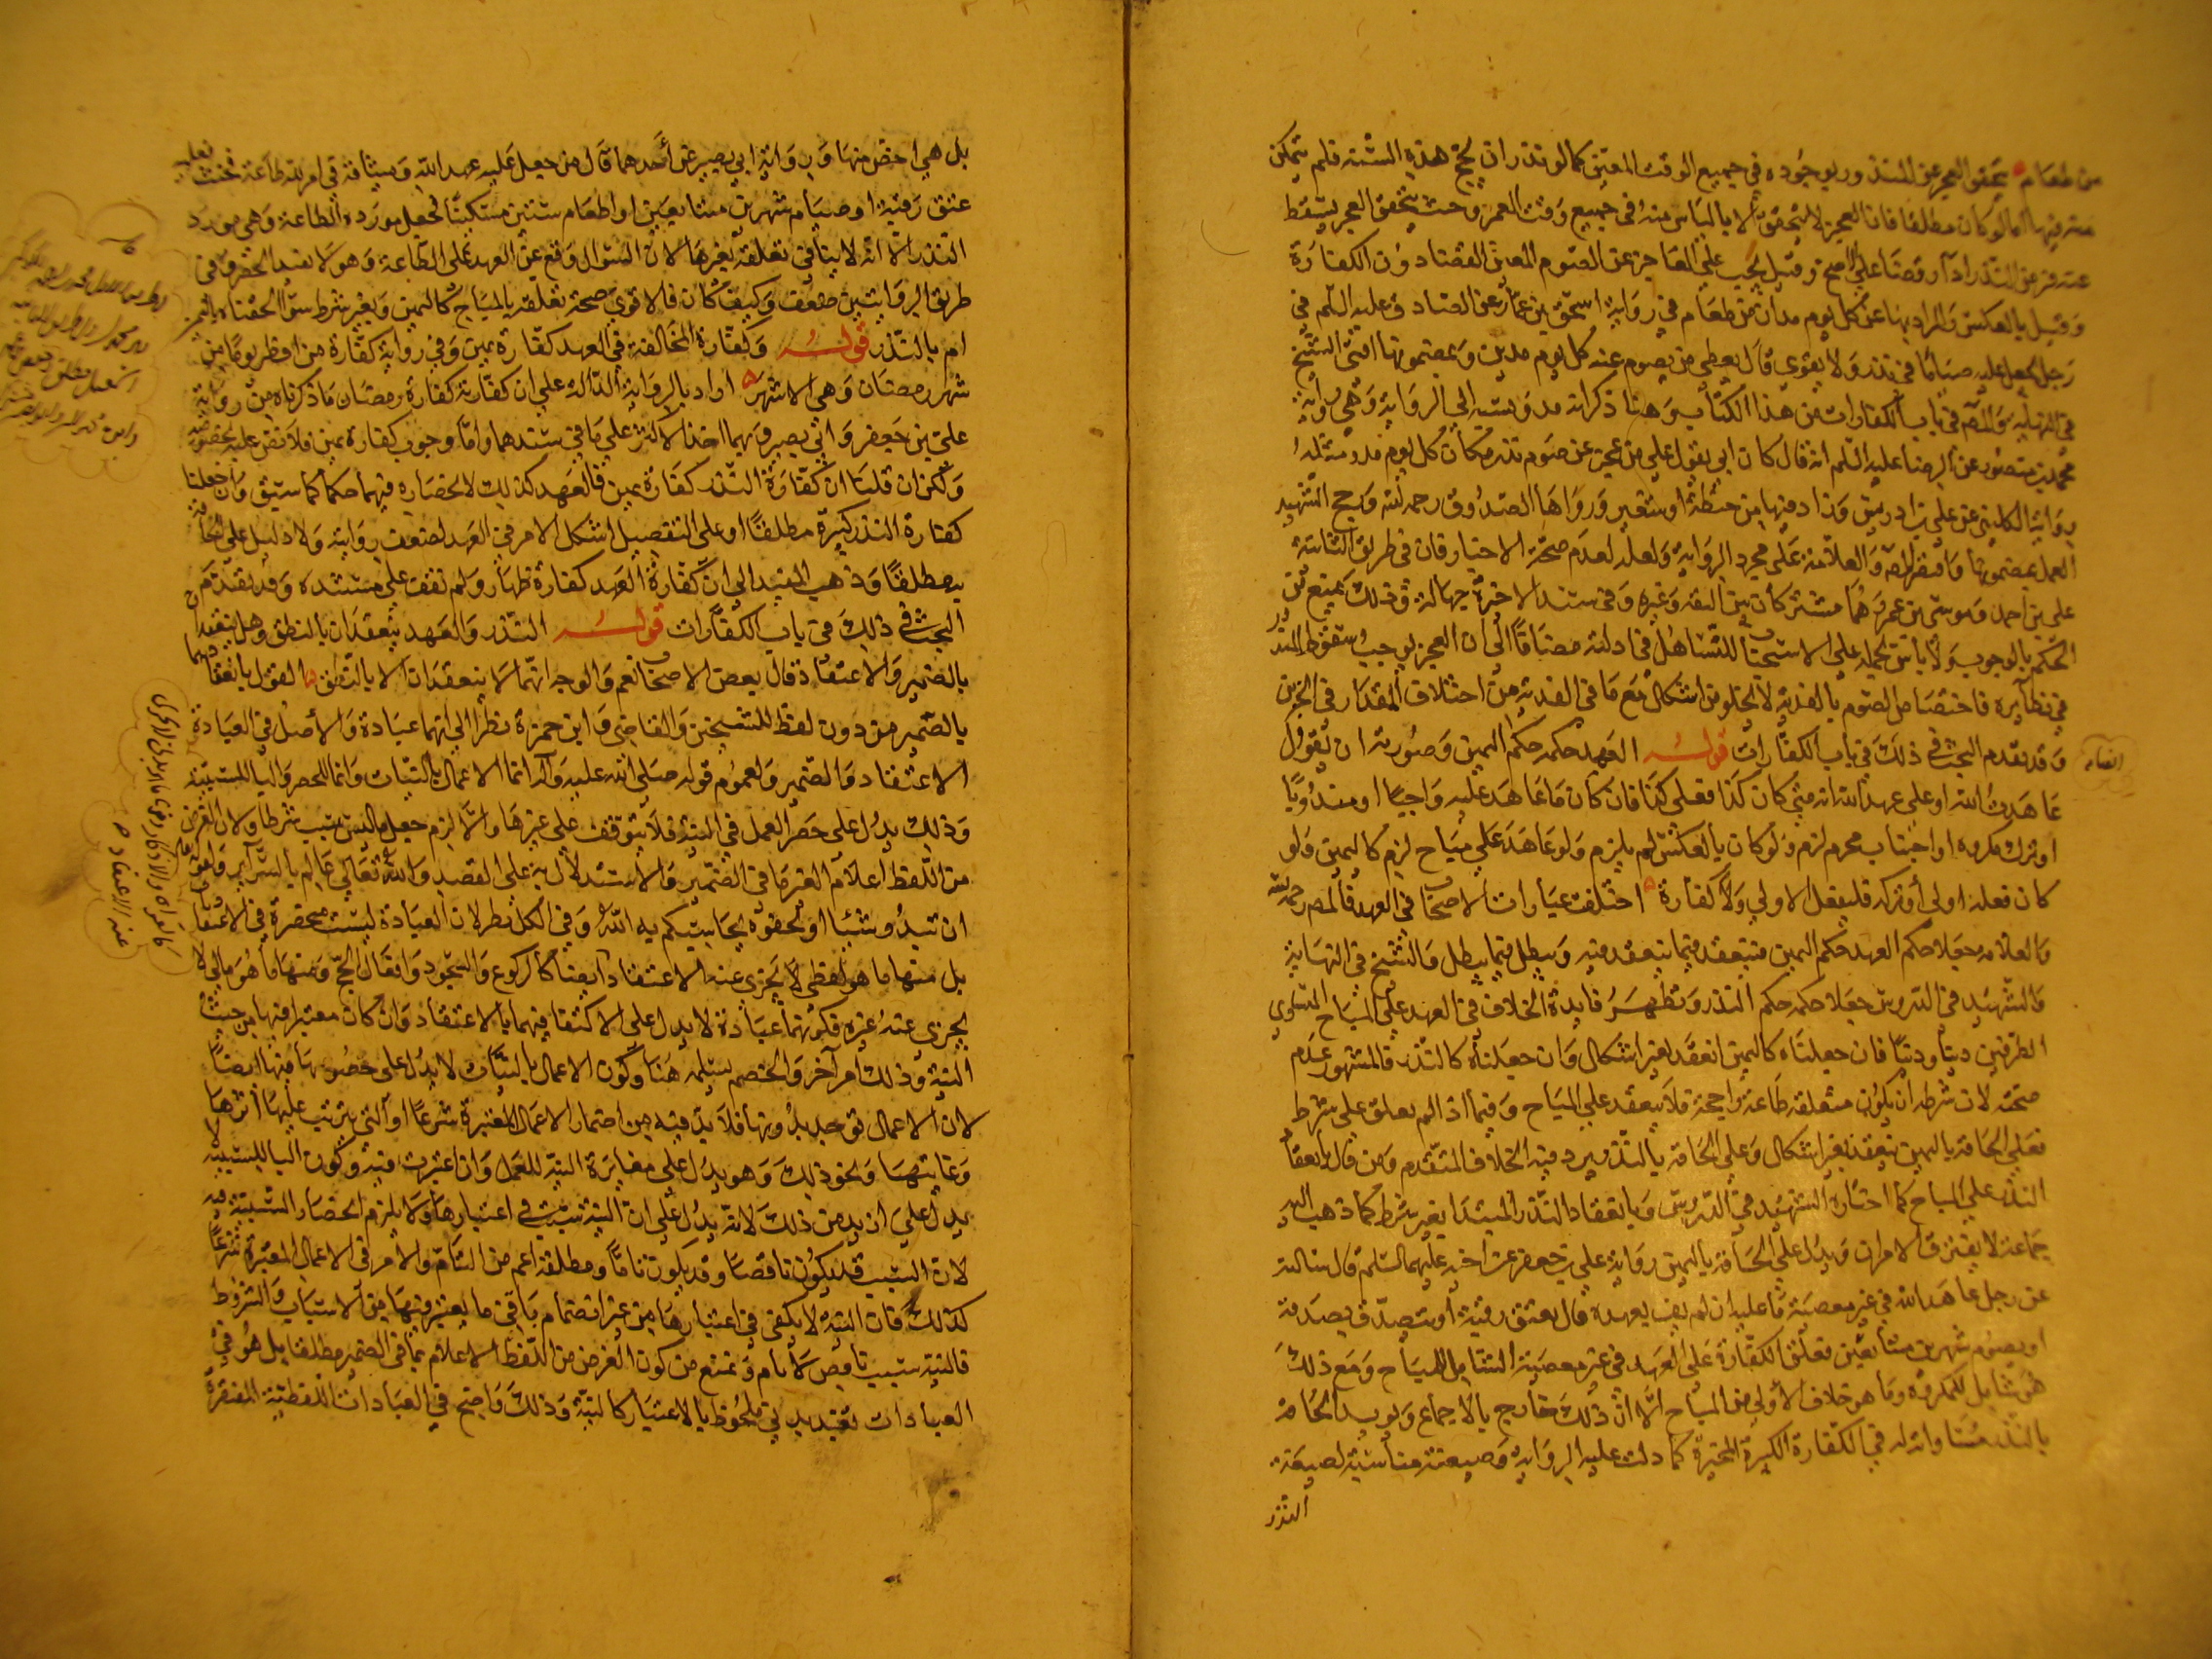 من طعام يتحقق العجز عن المنذور بوجوده في جميع الوقت المعين كما لو نذر ان يحج هذه السنة فلم يتمكن
منه فيها اما لو كان مطلقا فان العجز لا يتحقق الا بالياس منه في جميع وقت العمر وحيث يتحقق العجز يسقط
عنه فرض النذر اداء وقضاء على الاصح وقيل يجب على العاجز عن الصوم المعين القضاء دون الكفارة
وقيل بالعكس والمراد بهنا عن كل يوم مدان من طعام في رواية اسحق بن عمار عن الصادق عليه السلم في
رجل يجعل عليه صياما في نذر ولا يقوى قال يعطي من يصوم عنه كل يوم مدين وبمضمونها افتى الشيخ
في النهاية والمصنف في باب الكفارات من هذا الكتاب وهنا ذكر انه مد ونسبه الى الرواية وهي رواية
محمد بن منصور عن الرضا عليه السلم انه قال كان ابي يقول على من عجز عن صوم نذر مكان كل يوم مد ومثله
رواية الكليني عن علي بن ادريس وزاد فيها من حنطة او شعير ورواها الصدوق رحمه الله ورجح الشهيد
العمل بمضمونها واقتصر المصنف والعلامة على مجرد الرواية ولعله لعدم صحة الاخبار فان في طريق الثانية
علي بن احمد وموسى بن عمر وهما مشتركان بين الثقة وغيره وفي سند الاخيرة جهالة وذلك يمنع من
الحكم بالوجوب ولا باس بحمله على الاستحباب للتساهل في ادلته مضافا الى ان العجز يوجب سقوط النذر
في نظايره فاختصاص الصوم بالفدية لا يخلو من اشكال مع ما في الفدية من اختلاف المقدار في الخبرين
وقد تقدم البحث في ذلك في باب الكفارات قوله العهد حكمه حكم اليمين وصورته ان يقول
عاهدت الله او علي عهد الله انه متى كان كذا فعلي كذا فان كان ما عاهد عليه واجبا او مندوبا
او ترك مكروه او اجتناب محرم لزم ولو كان بالعكس لم يلزم ولو عاهد على مباح لزم كاليمين ولو
كان فعله اولى او تركه فليفعل الاولى ولا كفارة اختلفت عبارات الاصحاب في العهد فالمصنف رحمه الله
والعلامة جعلا حكم العهد حكم اليمين فينعقد فيما ينعقد فيه ويبطل فيما يبطل والشيخ في النهاية
والشهيد في الدروس جعلا حكمه حكم النذر وتظهر فايدة الخلاف في العهد على المباح المتساوي
الطرفين دينا ودنيا فان جعلناه كاليمين انعقد بغير اشكال وان جعلناه كالنذر فالمشهور عدم
صحته لان شرطه ان يكون متعلقه طاعة راجحة فلا ينعقد على المباح وفيما اذا لم يعلق على شرط
فعلى الحاقه باليمين ينعقد بغير اشكال وعلى الحاقه بالنذر يرد فيه الخلاف المتقدم ومن قال بانعقاد
النذر على المباح كما اختاره الشهيد في الدروس وبانعقاد النذر المبتدا بغير شرط كما ذهب اليه
جماعة لا يفترق الامران ويدل على الحاقه باليمين رواية علي بن جعفر عن اخيه عليهما السلم قال سالته
عن رجل عاهد الله في غير معصية ما عليه ان لم يف بعهده قال يعتق رقبة او يتصدق بصدقة
او يصوم شهرين متتابعين فعلق الكفارة على العهد في غير معصية الشامل للمباح ومع ذلك
هو شامل للمكروه وما هو خلاف الاولى من المباح الا ان ذلك خارج بالاجماع ويويد الحاقه
بالنذر مساواته له في الكفارة الكبيرة المخيرة كما دلت عليه الرواية وصيغته مناسبة لصيغة
النذر
ايضا
بل هي اخص منها ورواية ابي بصير عن احدهما قال من جعل عليه عهد الله وميثاقه في امر لله طاعة فحنث فعليه
عتق رقبة او صيام شهرين متتابعين او اطعام ستين مسكينا فجعل مورده الطاعة وهي مورد
النذر الا انه لا ينافي تعلقه بغيرها لان السوال وقع عن العهد على الطاعة وهو لا يفيد الحصر في
طريق الروايتين ضعف وكيف كان فالاقوى صحة تعلقه بالمباح كاليمين وبغير شرط سوا الحقناه باليمين
ام بالنذر قوله وكفارة المخالفة في العهد كفارة يمين وفي رواية كفارة من افطر يوما من
شهر رمضان وهي الاشهر اراد بالرواية الدالة على ان كفارته كفارة رمضان ما ذكرناه من رواية
علي بن جعفر وابي بصير فيهما اخذ الاكثر على ما في سندهما واما وجوب كفارة يمين فلا نص عليه بخصوصه
ولكن ان قلنا ان كفارة النذر كفارة يمين فالعهد كذلك لانحصاره فيهما حكما كما سبق وان جعلنا
كفارة النذر كبيرة مطلقا او على التفصيل اشكل الامر في العهد لضعف روايته ولا دليل على الحاقه
به مطلقا وذهب المفيد الى ان كفارة العهد كفارة ظهار ولم نقف على مستنده وقد تقدم
البحث في ذلك في باب الكفارات قوله النذر والعهد ينعقدان بالنطق وهل ينعقدان
بالضمير والاعتقاد قال بعض الاصحاب نعم والوجه انهما لا ينعقدان الا بالنطق القول بانعقادهما
بالضمير من دون لفظ للشيخين والقاضي وابن حمزة نظرا الى انهما عبادة والاصل في العبادة
الاعتقاد والضمير ولعموم قوله صلى الله عليه وآله انما الاعمال بالنيات وانما للحصر والبا للسببية
وذلك يدل على حصر العمل في النية فلا يتوقف على غيرها والا لزم جعل ما ليس بسبب شرطا ولان الغرض
من اللفظ اعلام الغير ما في الضمير والاستدلال به على القصد والله تعالى عالم بالسراير ولقوله
ان تبدوا شيئا او تخفوه يحاسبكم به الله وفي الكل نظر لان العبادة ليست منحصرة في الاعتقاد
بل منها ما هو لفظي لا يجزي عنه الاعتقاد ايضا كالركوع والسجود وافعال الحج ومنها ما هو مالي لا
يجزي عنه غيره فكونهما عبادة لا يدل على الاكتفا فيهما بالاعتقاد وان كان معتبرا فيها من حيث
النية وذلك امر آخر والخصم يسلمه هنا وكون الاعمال بالنيات لا يدل على حصرها فيها ايضا
لان الاعمال توجد بدونها فلا بد فيه من اضمار الاعمال المعتبرة شرعا او التي يترتب عليها اثرها
وغايتها ونحو ذلك وهو يدل على مغايرة النية للعمل وان اعتبرت فيه وكون البا للسببية لا
يدل على ازيد من ذلك لانه يدل على ان النية سبب في اعتبارها ولا يلزم انحصار السببية فيه
لان السبب قد يكون ناقصا وقد يكون تاما ومطلقه اعم من التام والامر في الاعمال المعتبرة شرعا
كذلك فان النية لا يكفي في اعتبارها من غير انضمام باقي ما يعتبر فيها من الاسباب والشروط
فالنية سبب ناقص لا تام ونمنع من كون الغرض من اللفظ الاعلام بما في الضمير مطلقا بل هو في
العبادات تعبد بدني ملحوظ بالاعتبار كالنية وذلك واضح في العبادات اللفظية المفتقرة
كالقراءة والاذكار وقوع ما لا يجزي
عنه الاعتقاد